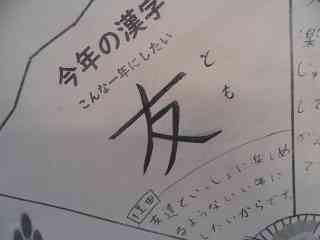 今年の漢字
こんな一年にしたい
友
とも
理由
友達といっしょに楽しめ
るようないい年に
したいからです。